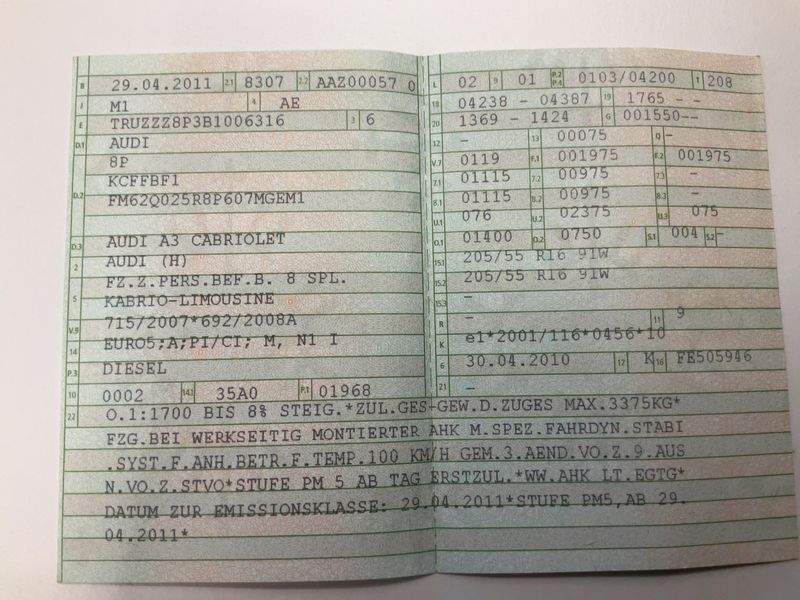 B 29.04.2011 2.1 8307 2.2 AAZ00057 0
J M1 4 AE
E TRUZZZ8P3B1006316 3 6
D.1 AUDI
8P
D.2 KCFFBF1
FM62Q025R8P607MGEM1
D.3 AUDI A3 CABRIOLET
2 AUDI (H)
FZ.Z.PERS.BEF.B. 8 SPL.
5 KABRIO-LIMOUSINE
V.9 715/2007*692/2008A
14 EURO5;A;PI/CI; M, N1 I
P.3 DIESEL
10 0002 14.1 35A0 P.1 01968
L 02 9 01 P.2 P.4 0103/04200 T 208
18 04238 - 04387 19 1765 - -
20 1369 - 1424 G 001550--
12 - 13 00075 Q -
V.7 0119 F.1 001975 F.2 001975
7.1 01115 7.2 00975 7.3 -
8.1 01115 8.2 00975 8.3 -
U.1 076 U.2 02375 U.3 075
O.1 01400 O.2 0750 S.1 004 S.2 -
15.1 205/55 R16 91W
15.2 205/55 R16 91W
15.3 -
R - 11 9
K e1*2001/116*0456*10
6 30.04.2010 17 K 16 FE505946
21 -
22 O.1:1700 BIS 8% STEIG.*ZUL.GES-GEW.D.ZUGES MAX.3375KG*
FZG.BEI WERKSEITIG MONTIERTER AHK M.SPEZ.FAHRDYN.STABI
.SYST.F.ANH.BETR.F.TEMP.100 KM/H GEM.3.AEND.VO.Z.9.AUS
N.VO.Z.STVO*STUFE PM 5 AB TAG ERSTZUL.*WW.AHK LT.EGTG*
DATUM ZUR EMISSIONSKLASSE: 29.04.2011*STUFE PM5,AB 29.
04.2011*